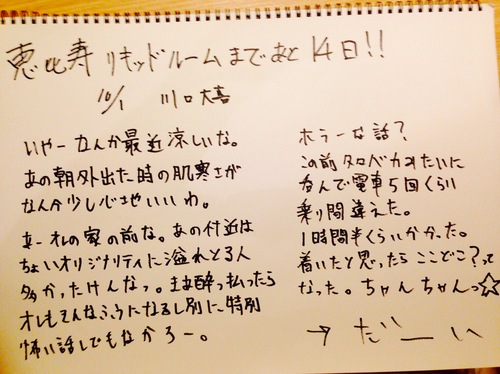 恵比寿リキッドルームまであと14日!!
10/1 川口大喜
いやーなんか最近涼しいな。
あの朝外出た時の肌寒さが
なんか少し心地いいわ。
あーオレの家の前な。あの付近は
ちょいオリジナリティに溢れとる人
多かったけんなっ。まあ酔っ払ったら
オレもそんなふうになるし別に特別
怖い話しでもなかろー。
ホラーな話?
この前タロベカみたいに
なんで電車5回くらい
乗り間違えた。
1時間半くらいかかった。
着いたと思ったらここどこ?って
なった。ちゃんちゃんっ☆
→ だいーい